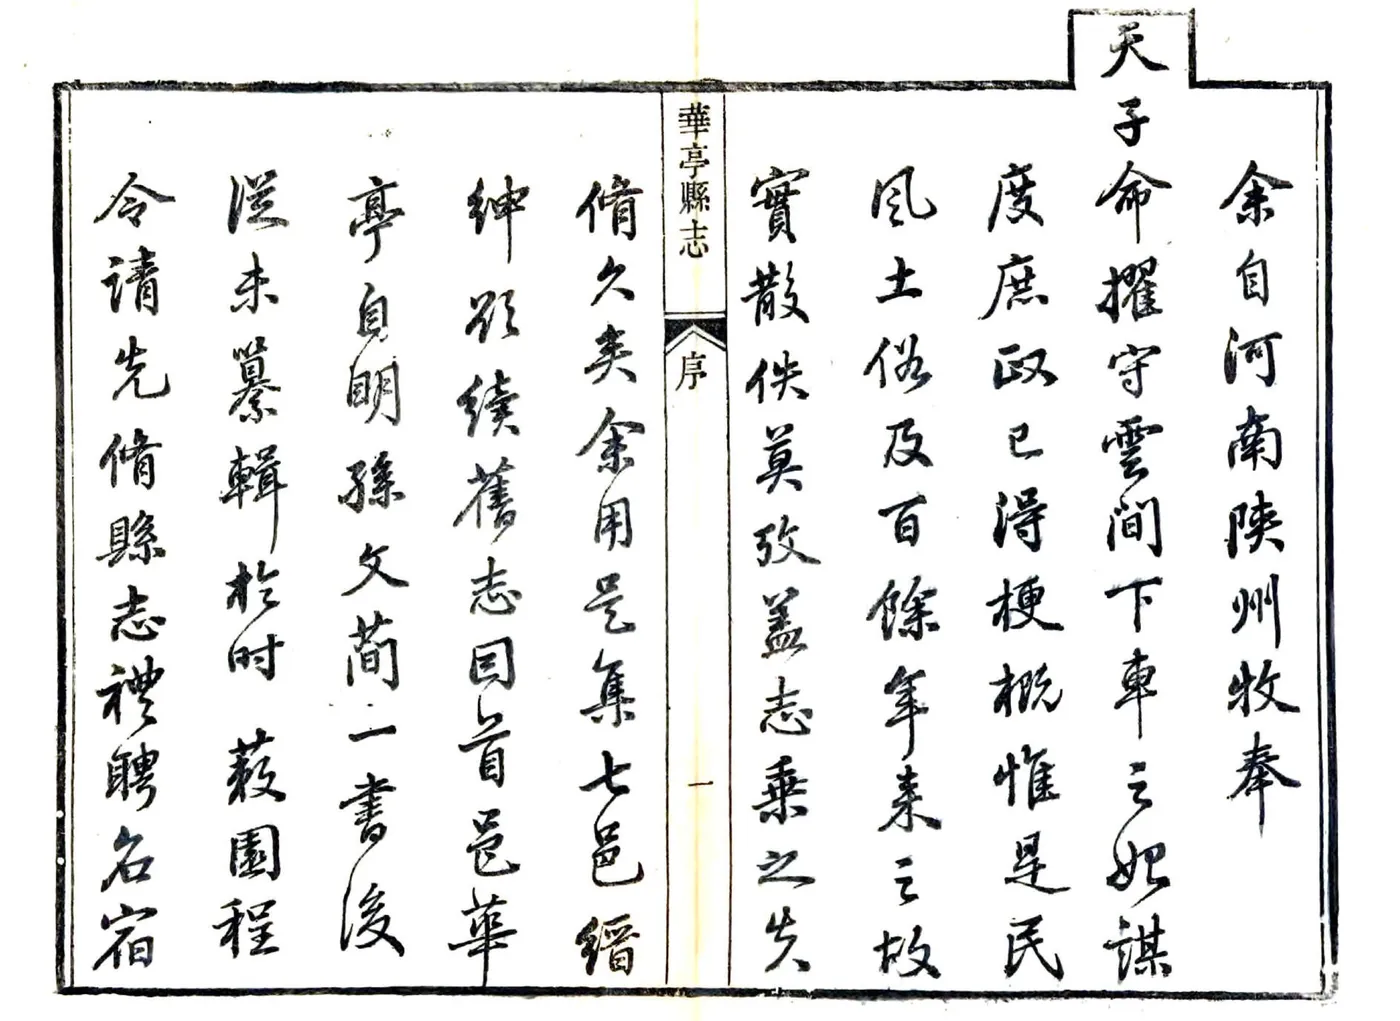 余自河南陝州牧奉
天子命擢守雲間下車之始謀
度庶政已得梗概惟是民
風土俗及百餘年來之故
實散佚莫攷蓋志乗之失
華亭縣志
序
一
脩久矣余用是集七邑縉
紳欲續舊志因首邑華
亭自明孫文簡一書後
從未纂輯於時 蔌園程
令請先脩縣志禮聘名宿